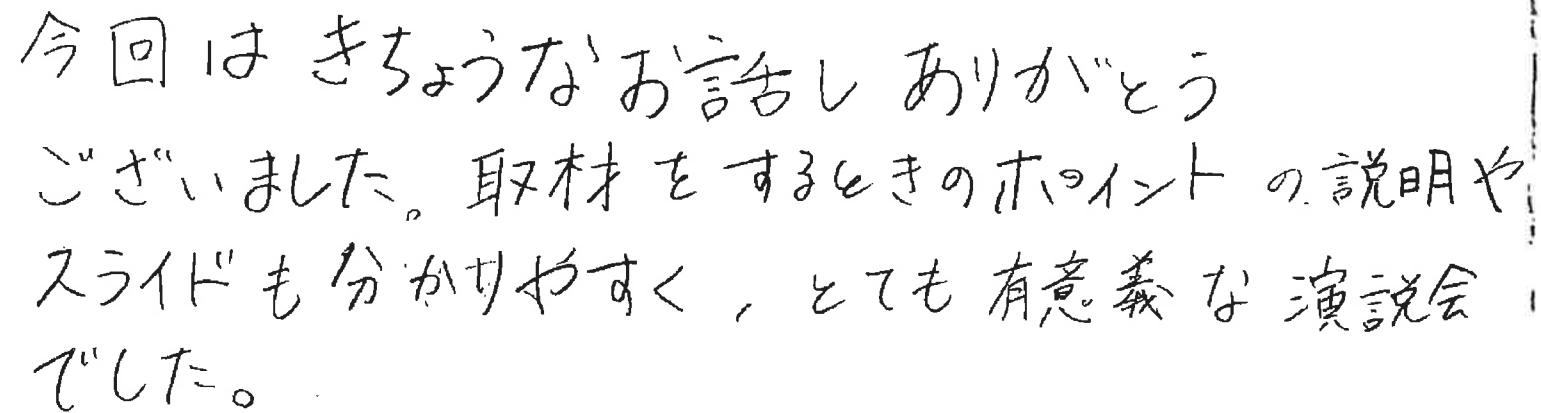 今回はきちょうなお話しありがとう
ございました。取材をするときのポイントの説明や
スライドも分かりやすく，とても有意義な演説会
でした。